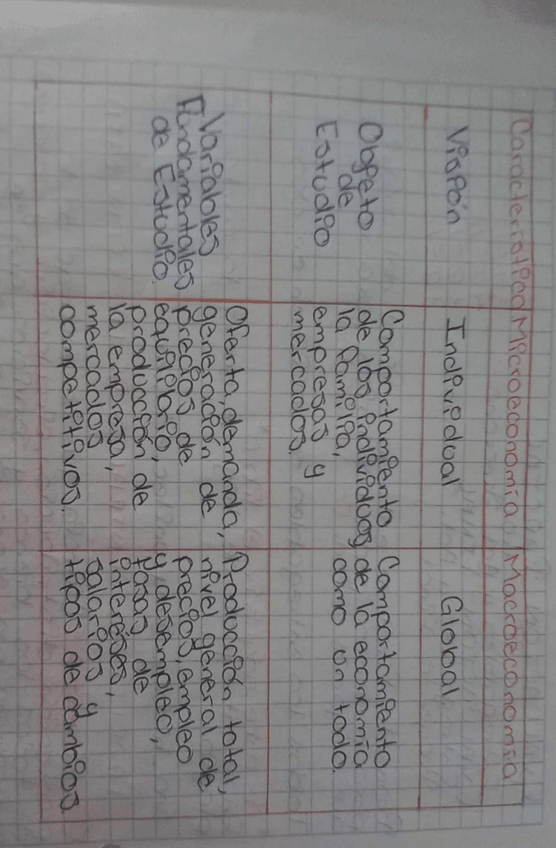 Característica Microeconomía Macroeconomía
Visión Individual Global
Objeto
de
Estudio
Comportamiento
de los individuos,
la familia,
empresas y
mercados.
Comportamiento
de la economía
como un todo.
Variables
Fundamentales
de Estudio.
Oferta, demanda,
generación de
precios de
equilibrio,
producción de
la empresa,
mercados
competitivos.
Producción total,
nivel general de
precios, empleo
y desempleo,
tasas de
intereses,
salarios y
tipos de cambios.